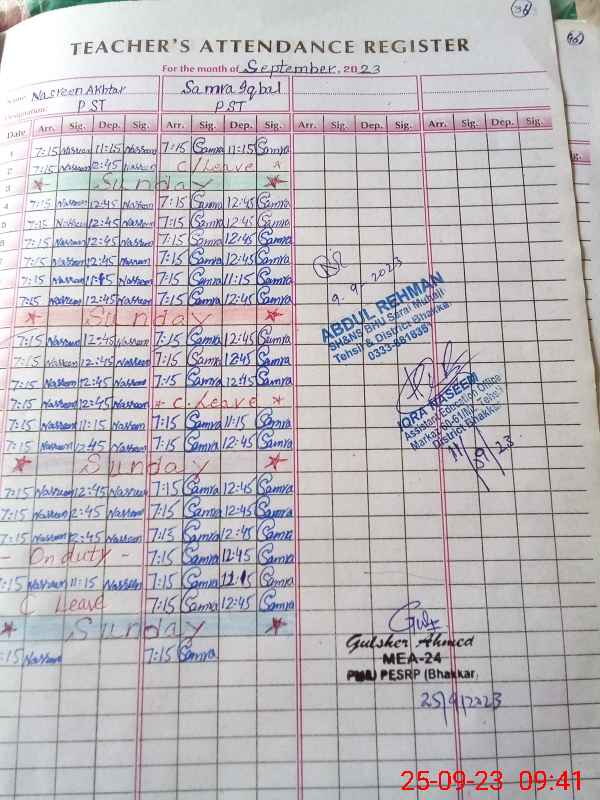 34
TEACHER'S ATTENDANCE REGISTER
For the month of September, 2023
Name Nasreen Akhtar Samra Iqbal
Designation PST PST
Date Arr. Sig. Dep. Sig. Arr. Sig. Dep. Sig. Arr. Sig. Dep. Sig. Arr. Sig. Dep. Sig.
1 7:15 Nasreen 11:15 Nasreen 7:15 Samra 11:15 Samra
2 7:15 Nasreen 12:45 Nasreen C/Leave
3 Sunday
4 7:15 Nasreen 12:45 Nasreen 7:15 Samra 12:45 Samra
5 7:15 Nasreen 12:45 Nasreen 7:15 Samra 12:45 Samra
6 7:15 Nasreen 12:45 Nasreen 7:15 Samra 12:45 Samra
7:15 Nasreen 12:45 Nasreen 7:15 Samra 12:45 Samra
7:15 Nasreen 11:15 Nasreen 7:15 Samra 11:15 Samra
7:15 Nasreen 12:45 Nasreen 7:15 Samra 12:45 Samra
Sunday
7:15 Nasreen 12:45 Nasreen 7:15 Samra 12:45 Samra
7:15 Nasreen 12:45 Nasreen 7:15 Samra 12:45 Samra
7:15 Nasreen 12:45 Nasreen 7:15 Samra 12:45 Samra
7:15 Nasreen 12:45 Nasreen C.Leave
7:15 Nasreen 11:15 Nasreen 7:15 Samra 11:15 Samra
7:15 Nasreen 12:45 Nasreen 7:15 Samra 12:45 Samra
Sunday
7:15 Nasreen 12:45 Nasreen 7:15 Samra 12:45 Samra
7:15 Nasreen 12:45 Nasreen 7:15 Samra 12:45 Samra
7:15 Nasreen 12:45 Nasreen 7:15 Samra 12:45 Samra
- On duty - 7:15 Samra 12:45 Samra
7:15 Nasreen 11:15 Nasreen 7:15 Samra 11:15 Samra
C Leave 7:15 Samra 12:45 Samra
Sunday
:15 Nasreen 7:15 Samra
9.9.2023
ABDUL REHMAN
SH&NS BHU Sarai Muhajir
Tehsil & District Bhakkar
IQRA NASEEM
Assistant Education Officer
District Bhakkar
11/9/23
Gulsher Ahmed
MEA-24
PMIU PESRP (Bhakkar)
25/9/2023
25-09-23 09:41